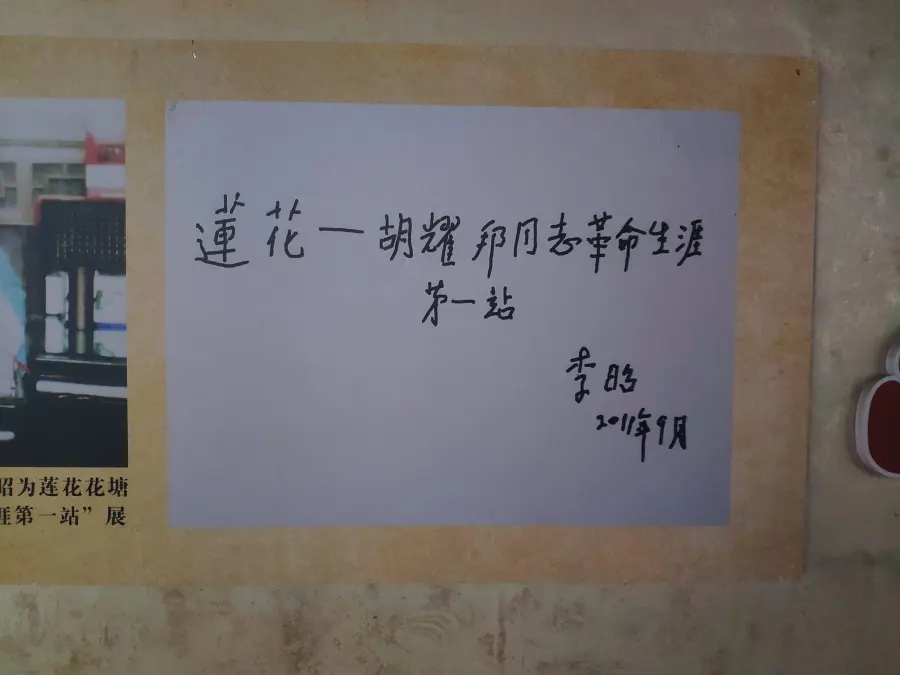 蓮花一胡耀邦同志革命生涯
第一站
李昭
2011年9月
昭为莲花花塘
涯第一站”展